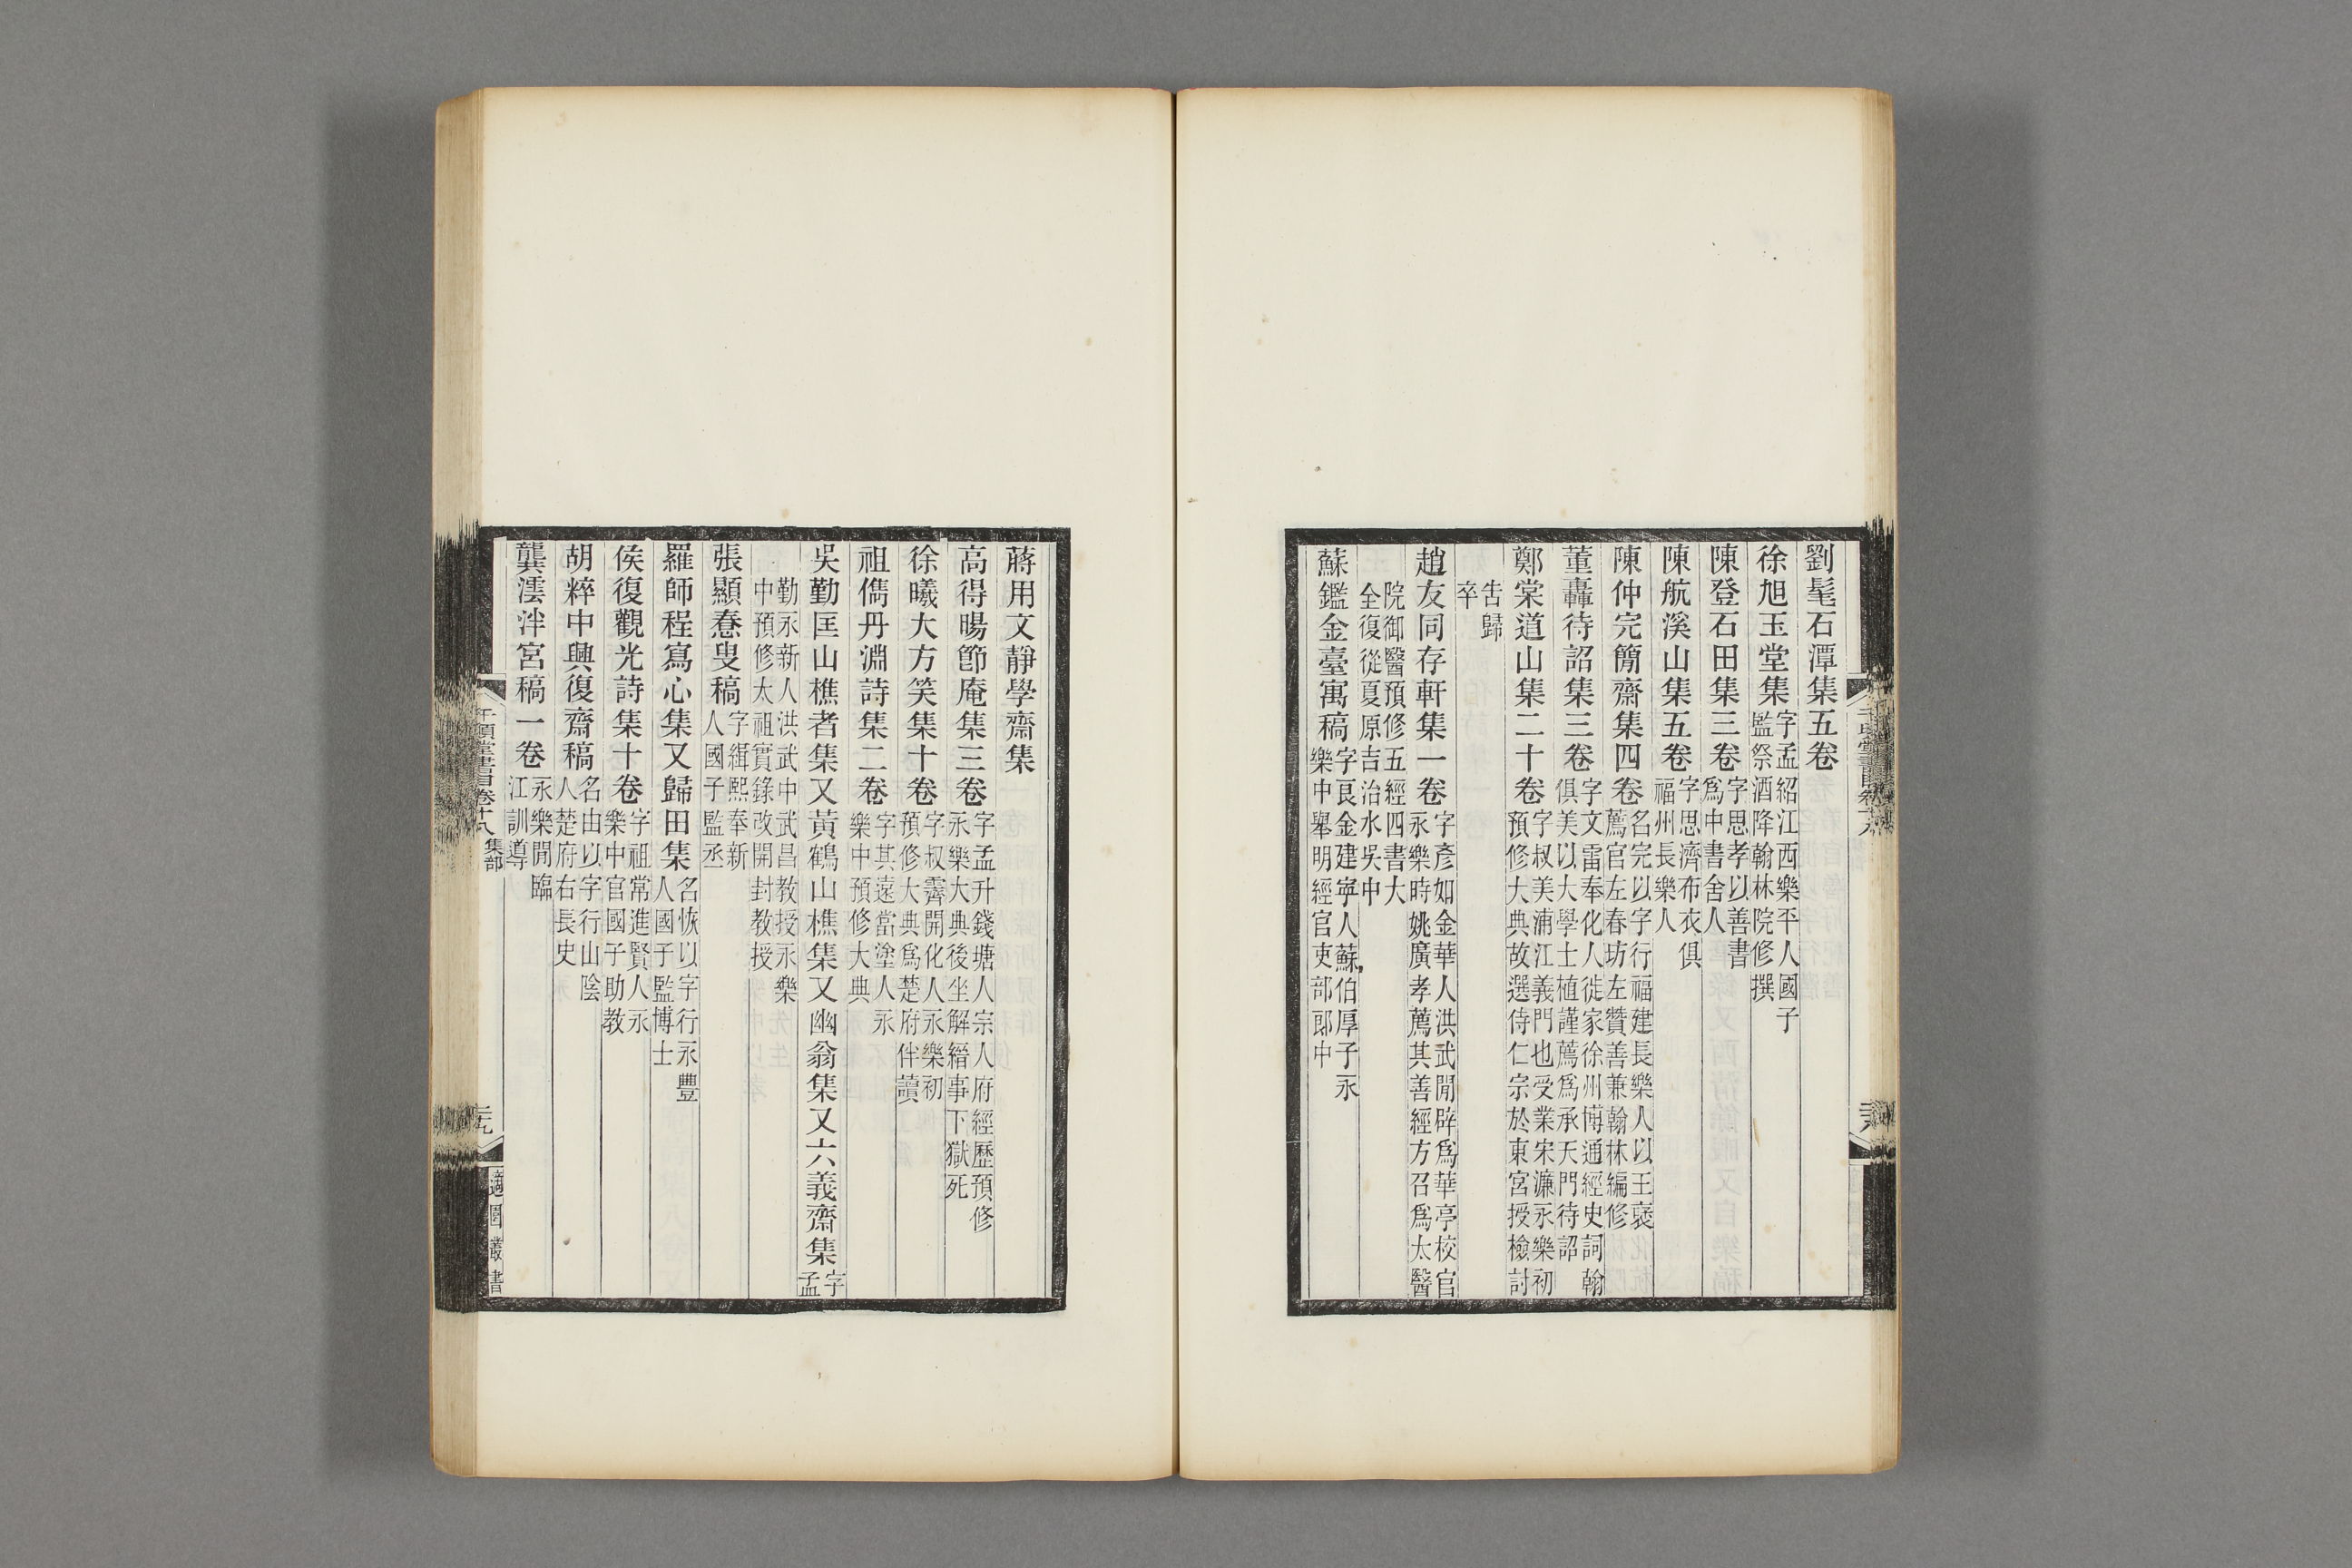 劉髦石潭集五卷
徐旭玉堂集字孟紹江西樂平人國子監祭酒降翰林院修撰
陳登石田集三卷字思孝以善書爲中書舍人
陳航溪山集五卷字思濟布衣俱福州長樂人
陳仲完簡齋集四卷名完以字行福建長樂人以王褒薦官左春坊左贊善兼翰林編修
董轟待詔集三卷字文雷奉化人徙家徐州博通經史詞翰俱美以大學士植謹薦爲承天門待詔
鄭棠道山集二十卷字叔美浦江義門也受業宋濂永樂初預修大典故選侍仁宗於東宮授檢討
告歸卒
趙友同存軒集一卷字彥如金華人洪武閒辟爲華亭校官永樂時姚廣孝薦其善經方召爲太醫
院御醫預修五經四書大全復從夏原吉治水吳中
蘇鑑金臺寓稿字艮金建寧人蘇伯厚子永樂中舉明經官吏部郎中
蔣用文靜學齋集
高得暘節庵集三卷字孟升錢塘人宗人府經歷預修永樂大典後坐解縉事下獄死
徐曦大方笑集十卷字叔霽開化人永樂初預修大典爲楚府伴讀
祖儁丹淵詩集二卷字其遠當塗人永樂中預修大典
吳勤匡山樵者集又黃鶴山樵集又幽翁集又六義齋集字孟
勤永新人洪武中武昌教授永樂中預修太祖實錄改開封教授
張顯惷叟稿字緝熙奉新人國子監丞
羅師程寫心集又歸田集名恢以字行永豐人國子監博士
侯復觀光詩集十卷字祖常進賢人永樂中官國子助教
胡粹中興復齋稿名由以字行山陰人楚府右長史
龔澐泮宮稿一卷永樂閒臨江訓導
千頃堂書目卷十八 集部
三九
適園叢書